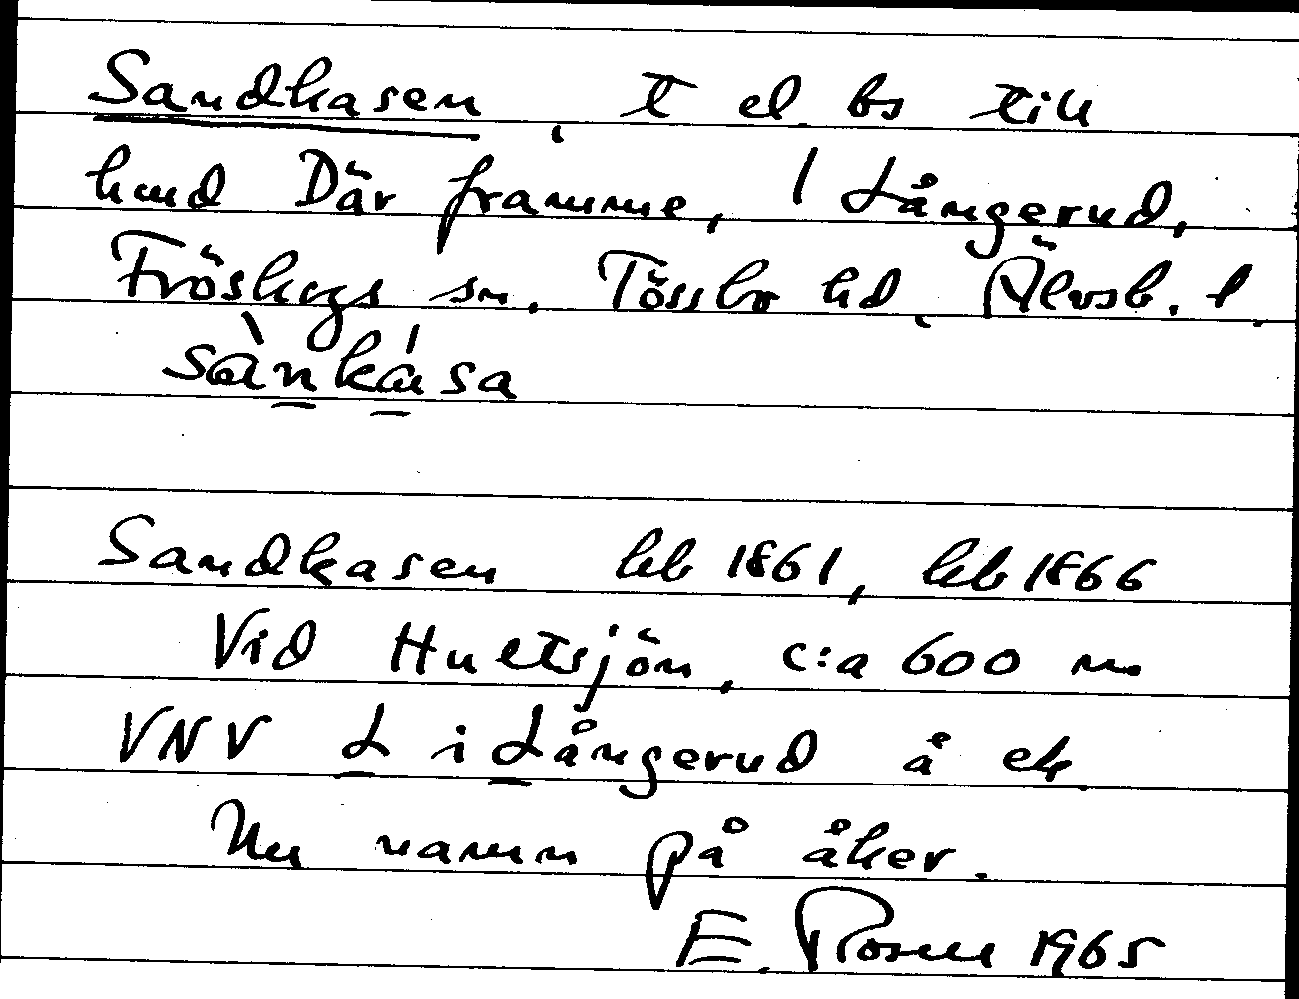 Sandkasen, t el. bs till
hmd Där framme, 1 Långerud,
Fröskogs sn. Tössbo hd. Älvsb. l.
sànkása
Sandkasen hb 1861, hb 1866
Vid Hultsjön, c:a 600 m
VNV L i Långerud å ek.
Nu namn på åker.
E. Rosell 1965